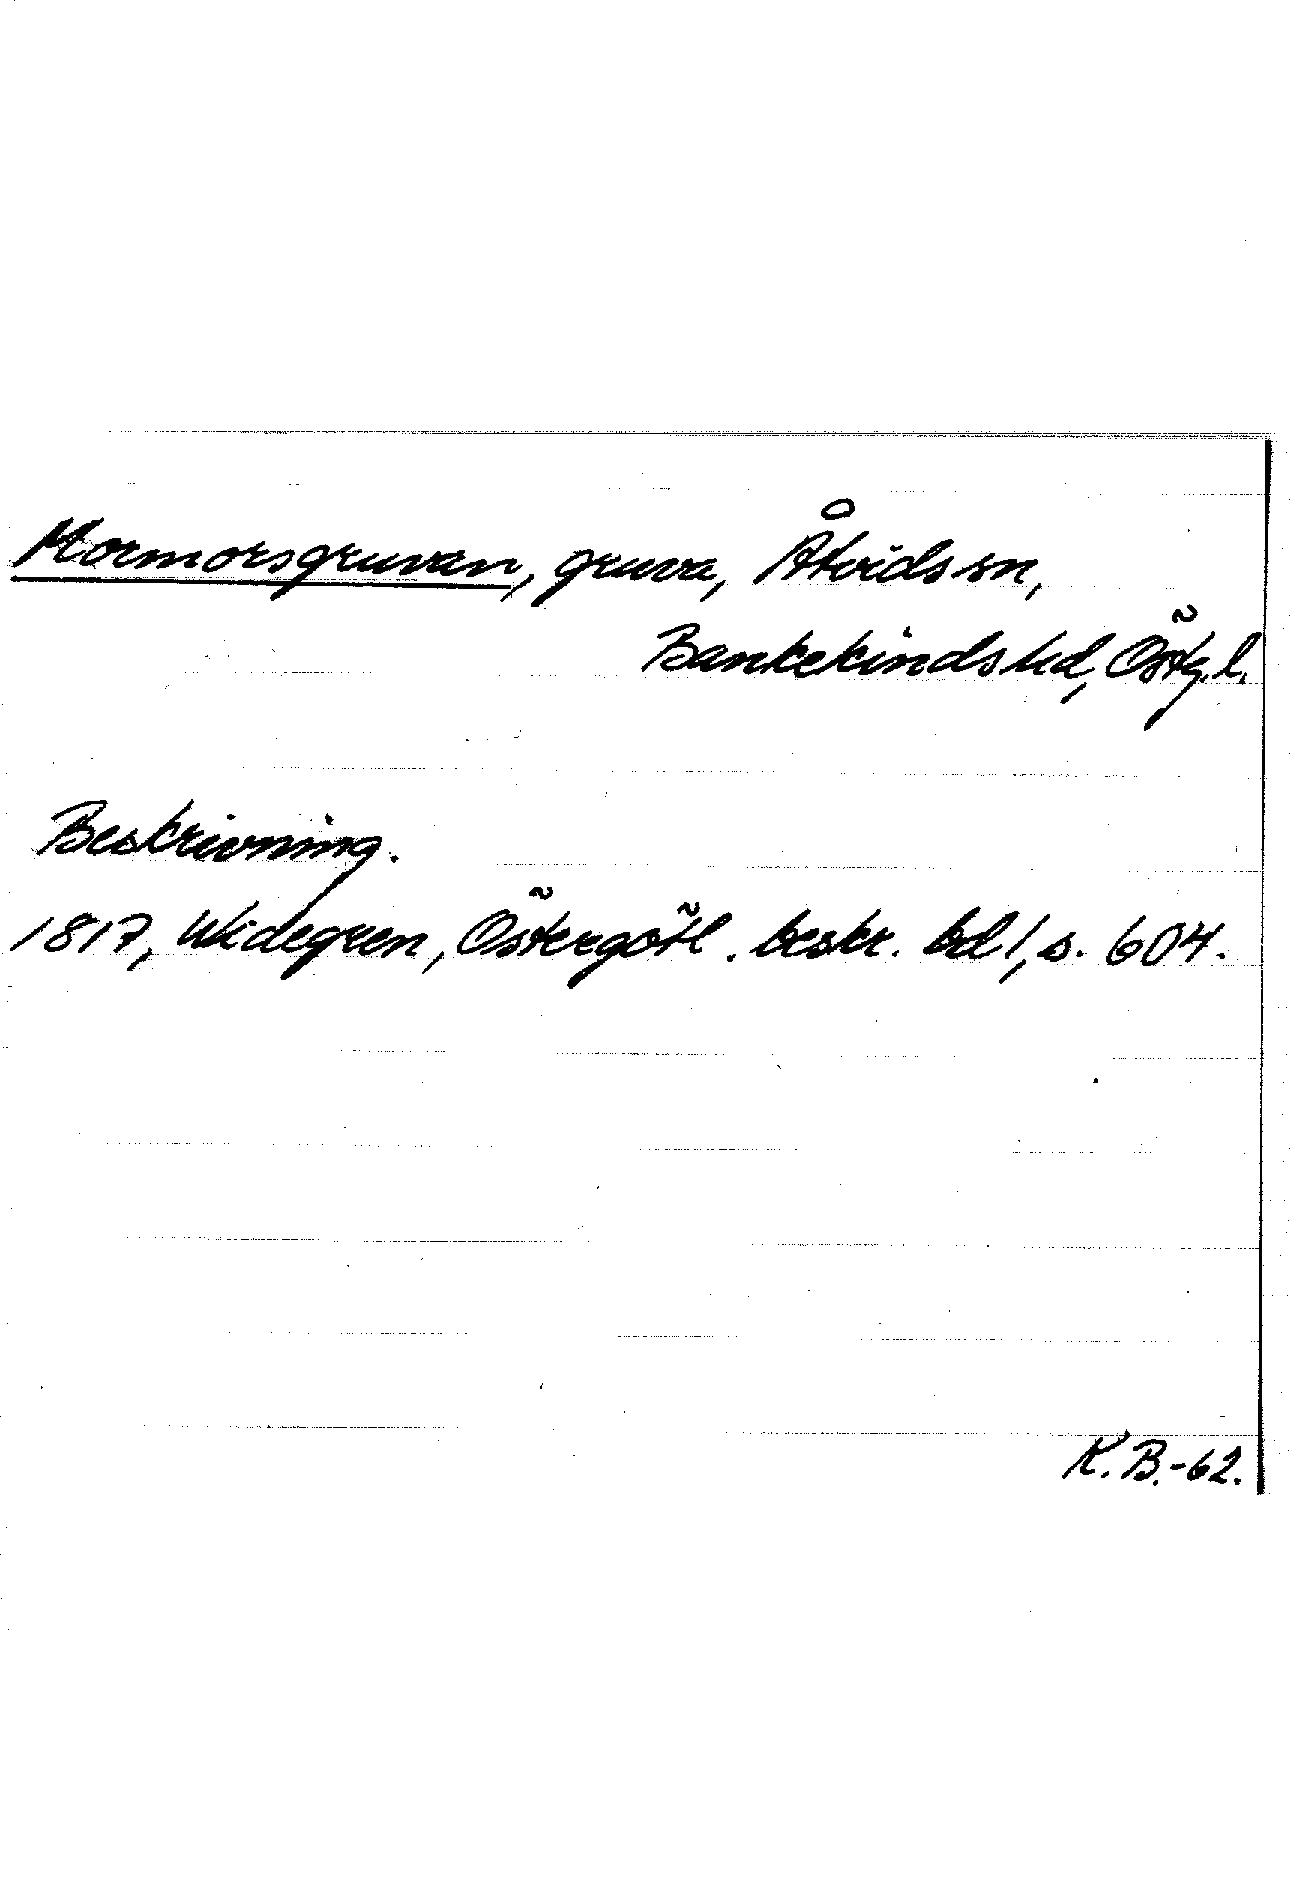 Mormorsgruvan, gruva, Åtvids sn,
Bankekinds hd, Östg.l.
Beskrivning.
1817, Widegren, Östergötl. beskr. bd 1, s. 604.
K.B.-62.